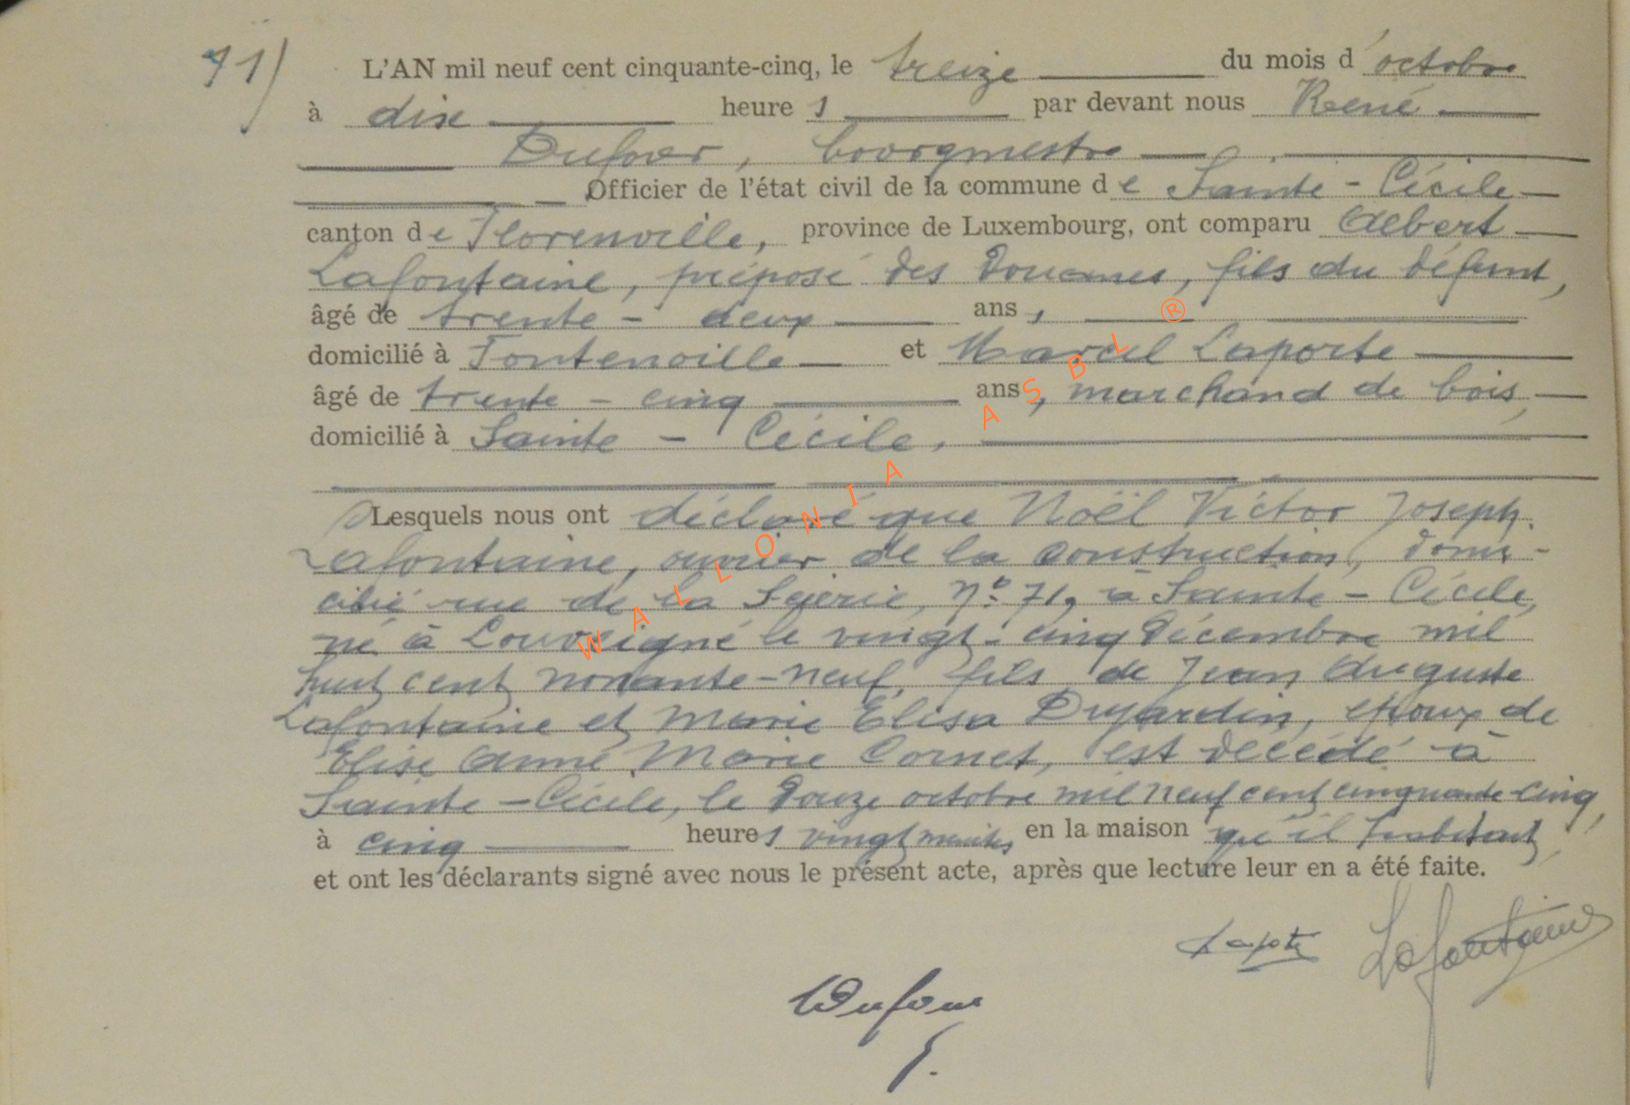 11)
L'AN mil neuf cent cinquante-cinq, le treize du mois d'octobre
à dix heures par devant nous René
Dufour, bourgmestre
Officier de l'état civil de la commune de Sainte-Cécile
canton de Florenville, province de Luxembourg, ont comparu Albert
Lafontaine, préposé des Douanes, fils du défunt,
âgé de trente-deux ans,
domicilié à Fontenoille et Marcel Laporte
âgé de trente-cinq ans, marchand de bois,
domicilié à Sainte-Cécile,
Lesquels nous ont déclaré que Noël Victor Joseph
Lafontaine, ouvrier de la construction, domi-
cilié rue de la Scierie, N° 71, à Sainte-Cécile,
né à Louveigné le vingt-cinq Décembre mil
huit cent nonante-neuf, fils de Jean Auguste
Lafontaine et Marie Elisa Dujardin, époux de
Elise Anne Marie Cornet, est décédé à
Sainte-Cécile, le Douze octobre mil neuf cent cinquante-cinq,
à cinq heures vingt minutes en la maison qu'il habitait,
et ont les déclarants signé avec nous le présent acte, après que lecture leur en a été faite.
Laporte Lafontaine
Dufour
WALLONIA ASBL ®